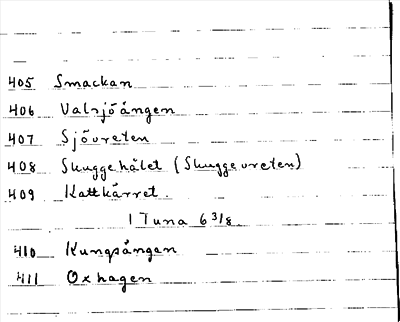 405 Smackan
406 Valsjöängen
407 Sjövreten
408 Skuggehålet (Skuggevreten)
409 Kattkärret.
1 Tuna 6 3/8
410 Kungsängen
411 Oxhagen